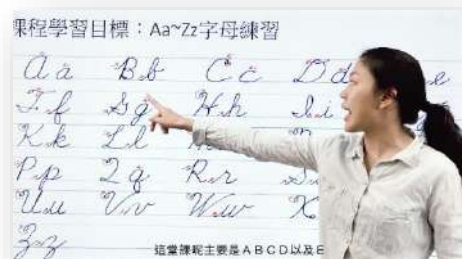 課程學習目標：Aa~Zz字母練習
A a B b C c D d e
F f G g H h I i
K k L l
P p Q q R r S
U u V v W w X
Z z
這堂課呢主要是ABCD以及E